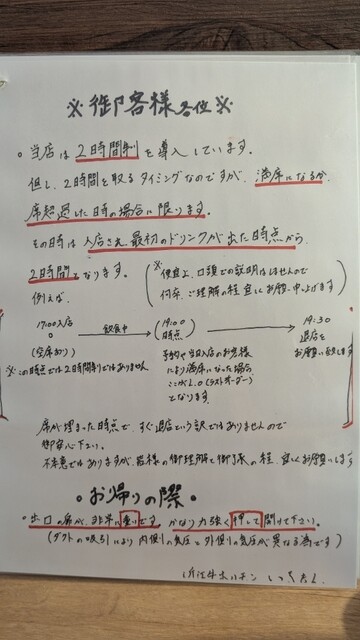 ※ 御客様各位 ※
○ 当店は2時間制を導入しています。
但し、2時間を取るタイミングなのですが、満席になるか、
席超過した時の場合に限ります。
その時は入店され、最初のドリンクが出た時点から、
2時間となります。
(※ 便宜上、口頭での説明は致しませんので
何卒、ご理解の程宜しくお願い申し上げます)
例えば、
17:00入店 → 飲食中 → (19:00時点) → 19:30
(空席あり)
※この時点では2時間制ではありません
予約や当日入店のお客様
により満席になった場合、
ここがL.O(ラストオーダー)
となります。
退店を
お願い致します
席が埋まった時点で、すぐ退店という訳ではありませんので
御安心下さい。
不本意ではありますが、皆様の御理解と御了承の程、宜しくお願いします
○ お帰りの際 ○
○ 出口の扉が、非常に重いです。かなり力強く押して開けて下さい。
(ダクトの吸引により内側の気圧と外側の気圧が異なる為です)
近江牛ホルモン